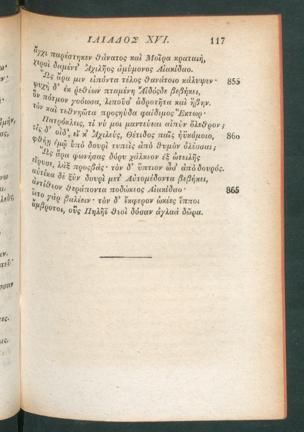 ΙΛΙΑΔΟΣ XVI. 117
ἄγχι παρέστηκεν θάνατος καὶ Μοῖρα κραταιή,
χερσὶ δαμέντ' Ἀχιλῆος ἀμύμονος Αἰακίδαο.
Ὣς ἄρα μιν εἰπόντα τέλος θανάτοιο κάλυψεν· 855
ψυχὴ δ' ἐκ ῥεθέων πταμένη Ἄϊδόσδε βεβήκει,
ὃν πότμον γοόωσα, λιποῦσ' ἀδροτῆτα καὶ ἥβην.
τὸν καὶ τεθνηῶτα προσηύδα φαίδιμος Ἕκτωρ·
Πατρόκλεις, τί νύ μοι μαντεύεαι αἰπὺν ὄλεθρον;
τίς δ' οἶδ', εἴ κ' Ἀχιλεύς, Θέτιδος παῖς ἠϋκόμοιο, 860
φθήῃ ἐμῷ ὑπὸ δουρὶ τυπεὶς ἀπὸ θυμὸν ὀλέσσαι;
Ὣς ἄρα φωνήσας δόρυ χάλκεον ἐξ ὠτειλῆς
εἴρυσε, λὰξ προσβάς· τὸν δ' ὕπτιον ὦσ' ἀπὸ δουρός.
αὐτίκα δὲ ξὺν δουρὶ μετ' Αὐτομέδοντα βεβήκει,
ἀντίθεον θεράποντα ποδώκεος Αἰακίδαο· 865
ἵετο γὰρ βαλέειν· τὸν δ' ἔκφερον ὠκέες ἵπποι
ἄμβροτοι, οὓς Πηλῆϊ θεοὶ δόσαν ἀγλαὰ δῶρα.